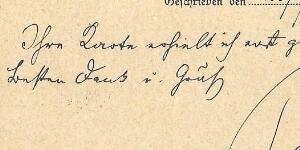 Geschrieben den
Ihre Karte erhielt ich erst g
besten Dank u. Gruß